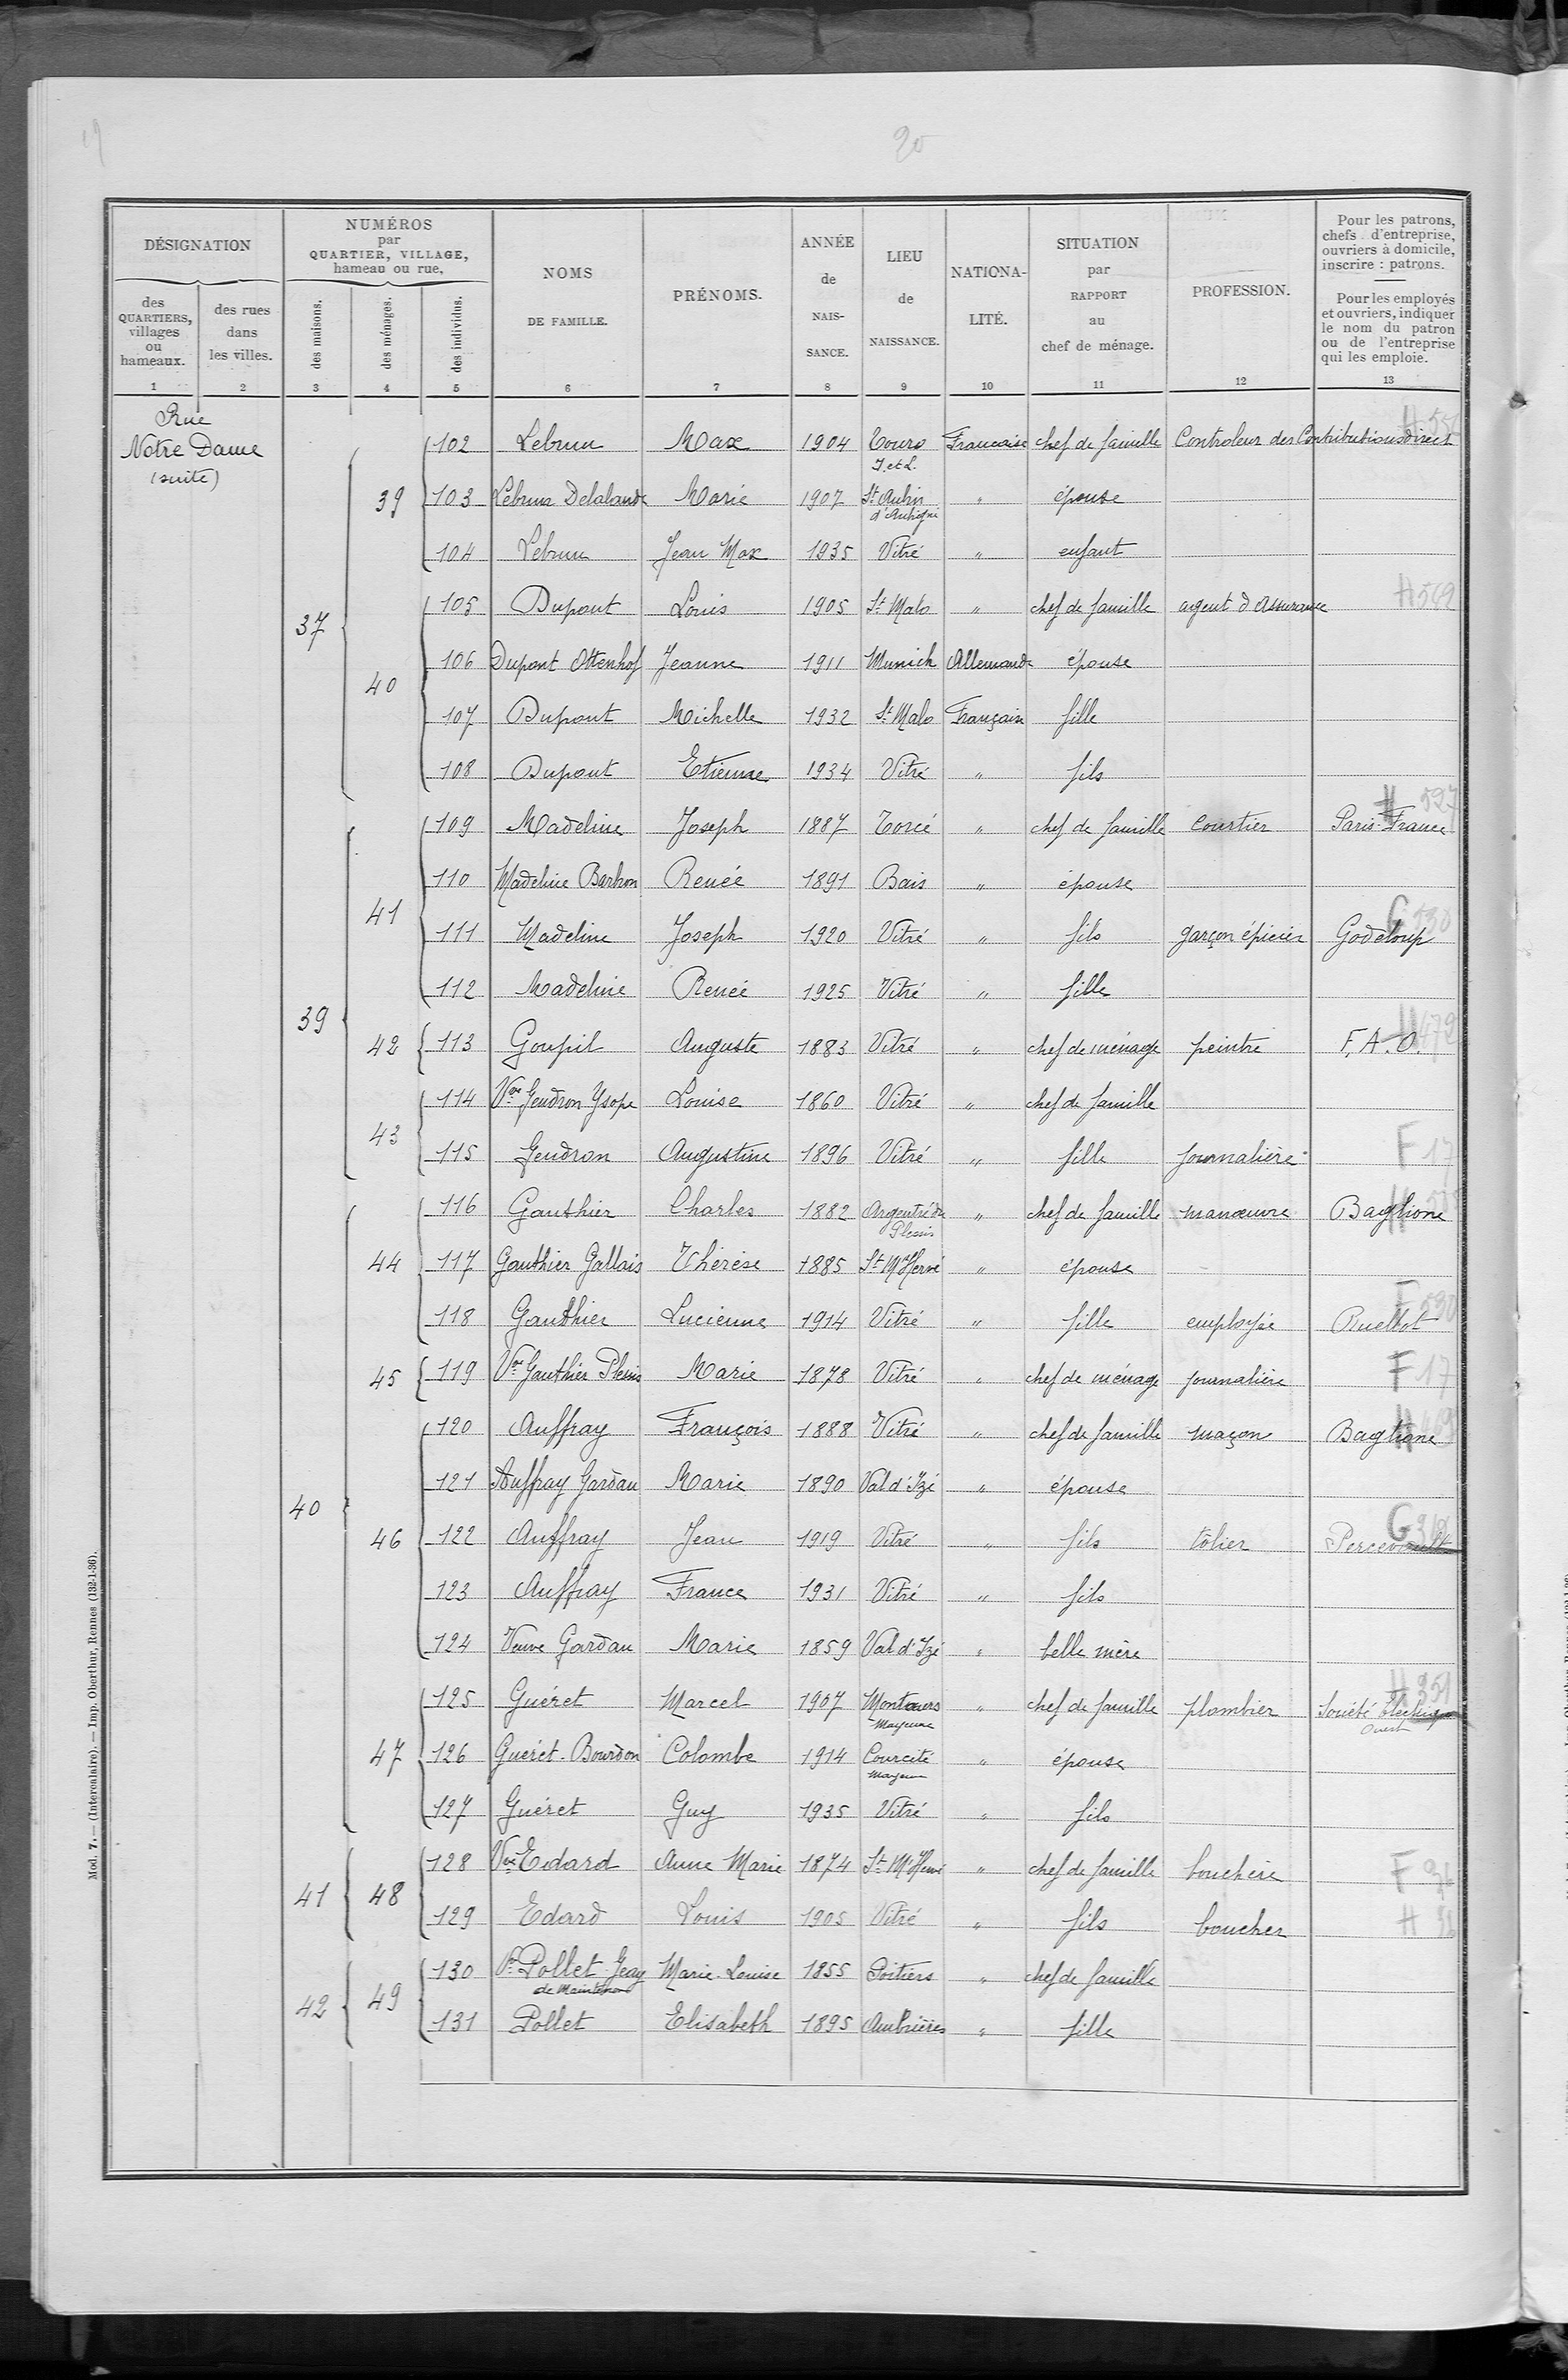 20
DÉSIGNATION
des QUARTIERS, villages ou hameaux.
des rues dans les villes.
NUMÉROS par QUARTIER, VILLAGE, hameau ou rue,
des maisons.
des ménages.
des individus.
NOMS DE FAMILLE.
PRÉNOMS.
ANNÉE de NAIS- SANCE.
LIEU de NAISSANCE.
NATIONA- LITÉ.
SITUATION par RAPPORT au chef de ménage.
PROFESSION.
Pour les patrons, chefs d'entreprise, ouvriers à domicile, inscrire : patrons.
Pour les employés et ouvriers, indiquer le nom du patron ou de l'entreprise qui les emploie.
1 2 3 4 5 6 7 8 9 10 11 12 13
Rue Notre Dame (suite)
102 Lebrun Max 1904 Tours I. et L. Francaise chef de famille Controleur des Contributions direct
37 39 103 Lebrun Delalande Marie 1907 St Aubin d'Aubigné " épouse
104 Lebrun Jean Max 1935 Vitré " enfant
105 Dupont Louis 1905 St Malo " chef de famille agent d'Assurance H 569
40 106 Dupont Ottenhof Jeanne 1911 Munich Allemande épouse
107 Dupont Michelle 1932 St Malo Française fille
108 Dupont Etienne 1934 Vitré " fils
109 Madeline Joseph 1887 Torcé " chef de famille courtier Paris-France H 527
39 41 110 Madeline Barbron Renée 1891 Bais " épouse
111 Madeline Joseph 1920 Vitré " fils garçon épicier Godeloup G 530
112 Madeline Renée 1925 Vitré " fille
42 113 Goupil Auguste 1883 Vitré " chef de ménage peintre F. A. O. H 479
43 114 Vve Gendron Ysope Louise 1860 Vitré " chef de famille
115 Gendron Augustine 1896 Vitré " fille journalière F 17
40 44 116 Gauthier Charles 1882 Argentré du Plessis " chef de famille manœuvre Baglione
117 Gauthier Gallais Thérèse 1885 St M. Hervé " épouse
118 Gauthier Lucienne 1914 Vitré " fille employée Ruellot F 590
45 119 Vve Gauthier Plessis Marie 1878 Vitré " chef de ménage journalière F 17
46 120 Auffray François 1888 Vitré " chef de famille maçon Baglione H 469
121 Auffray Gardan Marie 1890 Val d'Izé " épouse
122 Auffray Jean 1919 Vitré " fils tôlier Percevault
123 Auffray France 1931 Vitré " fils
124 Veuve Gardan Marie 1859 Val d'Izé " belle mère
47 125 Guéret Marcel 1907 Montaurs Mayenne " chef de famille plombier Société Electrique Ouest H 351
126 Guéret-Bourdon Colombe 1914 Courcité Mayenne " épouse
127 Guéret Guy 1935 Vitré " fils
41 48 128 Vve Edard Anne Marie 1874 St M. Hervé " chef de famille bouchère
129 Edard Louis 1905 Vitré " fils boucher
42 49 130 Ve Pollet-Geay de Maintenon Marie-Louise 1855 Poitiers " chef de famille
131 Pollet Elisabeth 1895 Ambrières " fille
Mod. 7. — (Intercalaire). — Imp. Oberthur, Rennes (132-1-36).